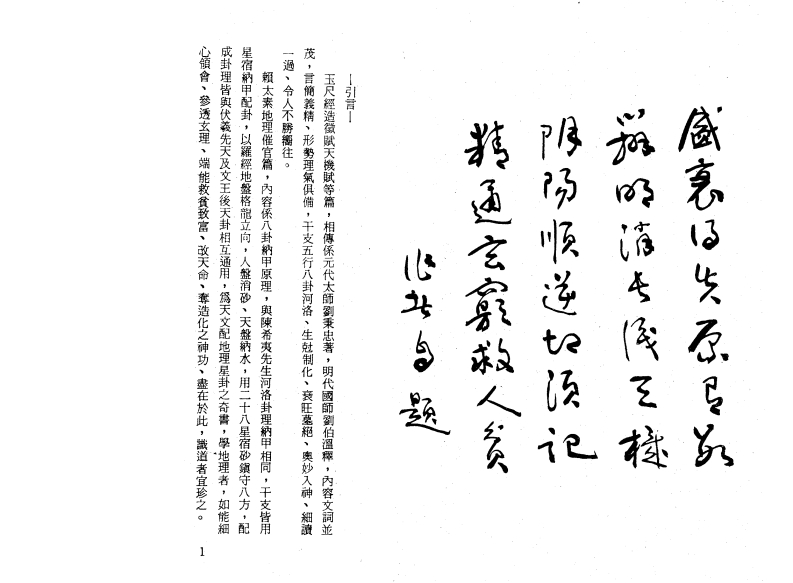 盛衰得失原有數
辨明消長識天機
陰陽順逆切須記
精通玄竅救人貧
自題
—引言—
玉尺經造微賦天機賦等篇，相傳係元代太師劉秉忠著，明代國師劉伯溫釋，內容文詞並
茂，言簡義精、形勢理氣俱備，干支五行八卦河洛、生尅制化、衰旺墓絕、奧妙入神、細讀
一過、令人不勝嚮往。
賴太素地理催官篇，內容係八卦納甲原理，與陳希夷先生河洛卦理納甲相同，干支皆用
星宿納甲配卦，以羅經地盤格龍立向，人盤消砂、天盤納水，用二十八星宿砂鎮守八方，配
成卦理皆與伏羲先天及文王後天卦相互通用，爲天文配地理星卦之奇書，學地理者，如能細
心領會、參透玄理、端能救貧致富、改天命、奪造化之神功、盡在於此，識道者宜珍之。
1